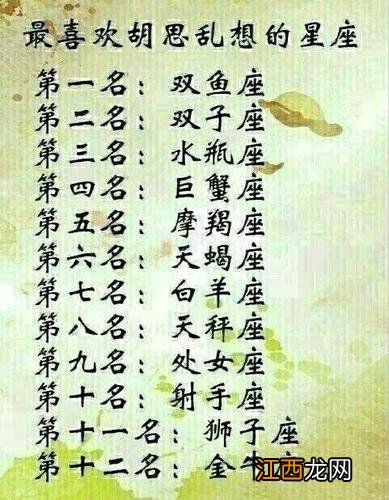 最喜欢胡思乱想的星座
第一名：双鱼座
第二名：双子座
第三名：水瓶座
第四名：巨蟹座
第五名：摩羯座
第六名：天蝎座
第七名：白羊座
第八名：天秤座
第九名：处女座
第十名：射手座
第十一名：狮子座
第十二名：金牛座
江西龙网